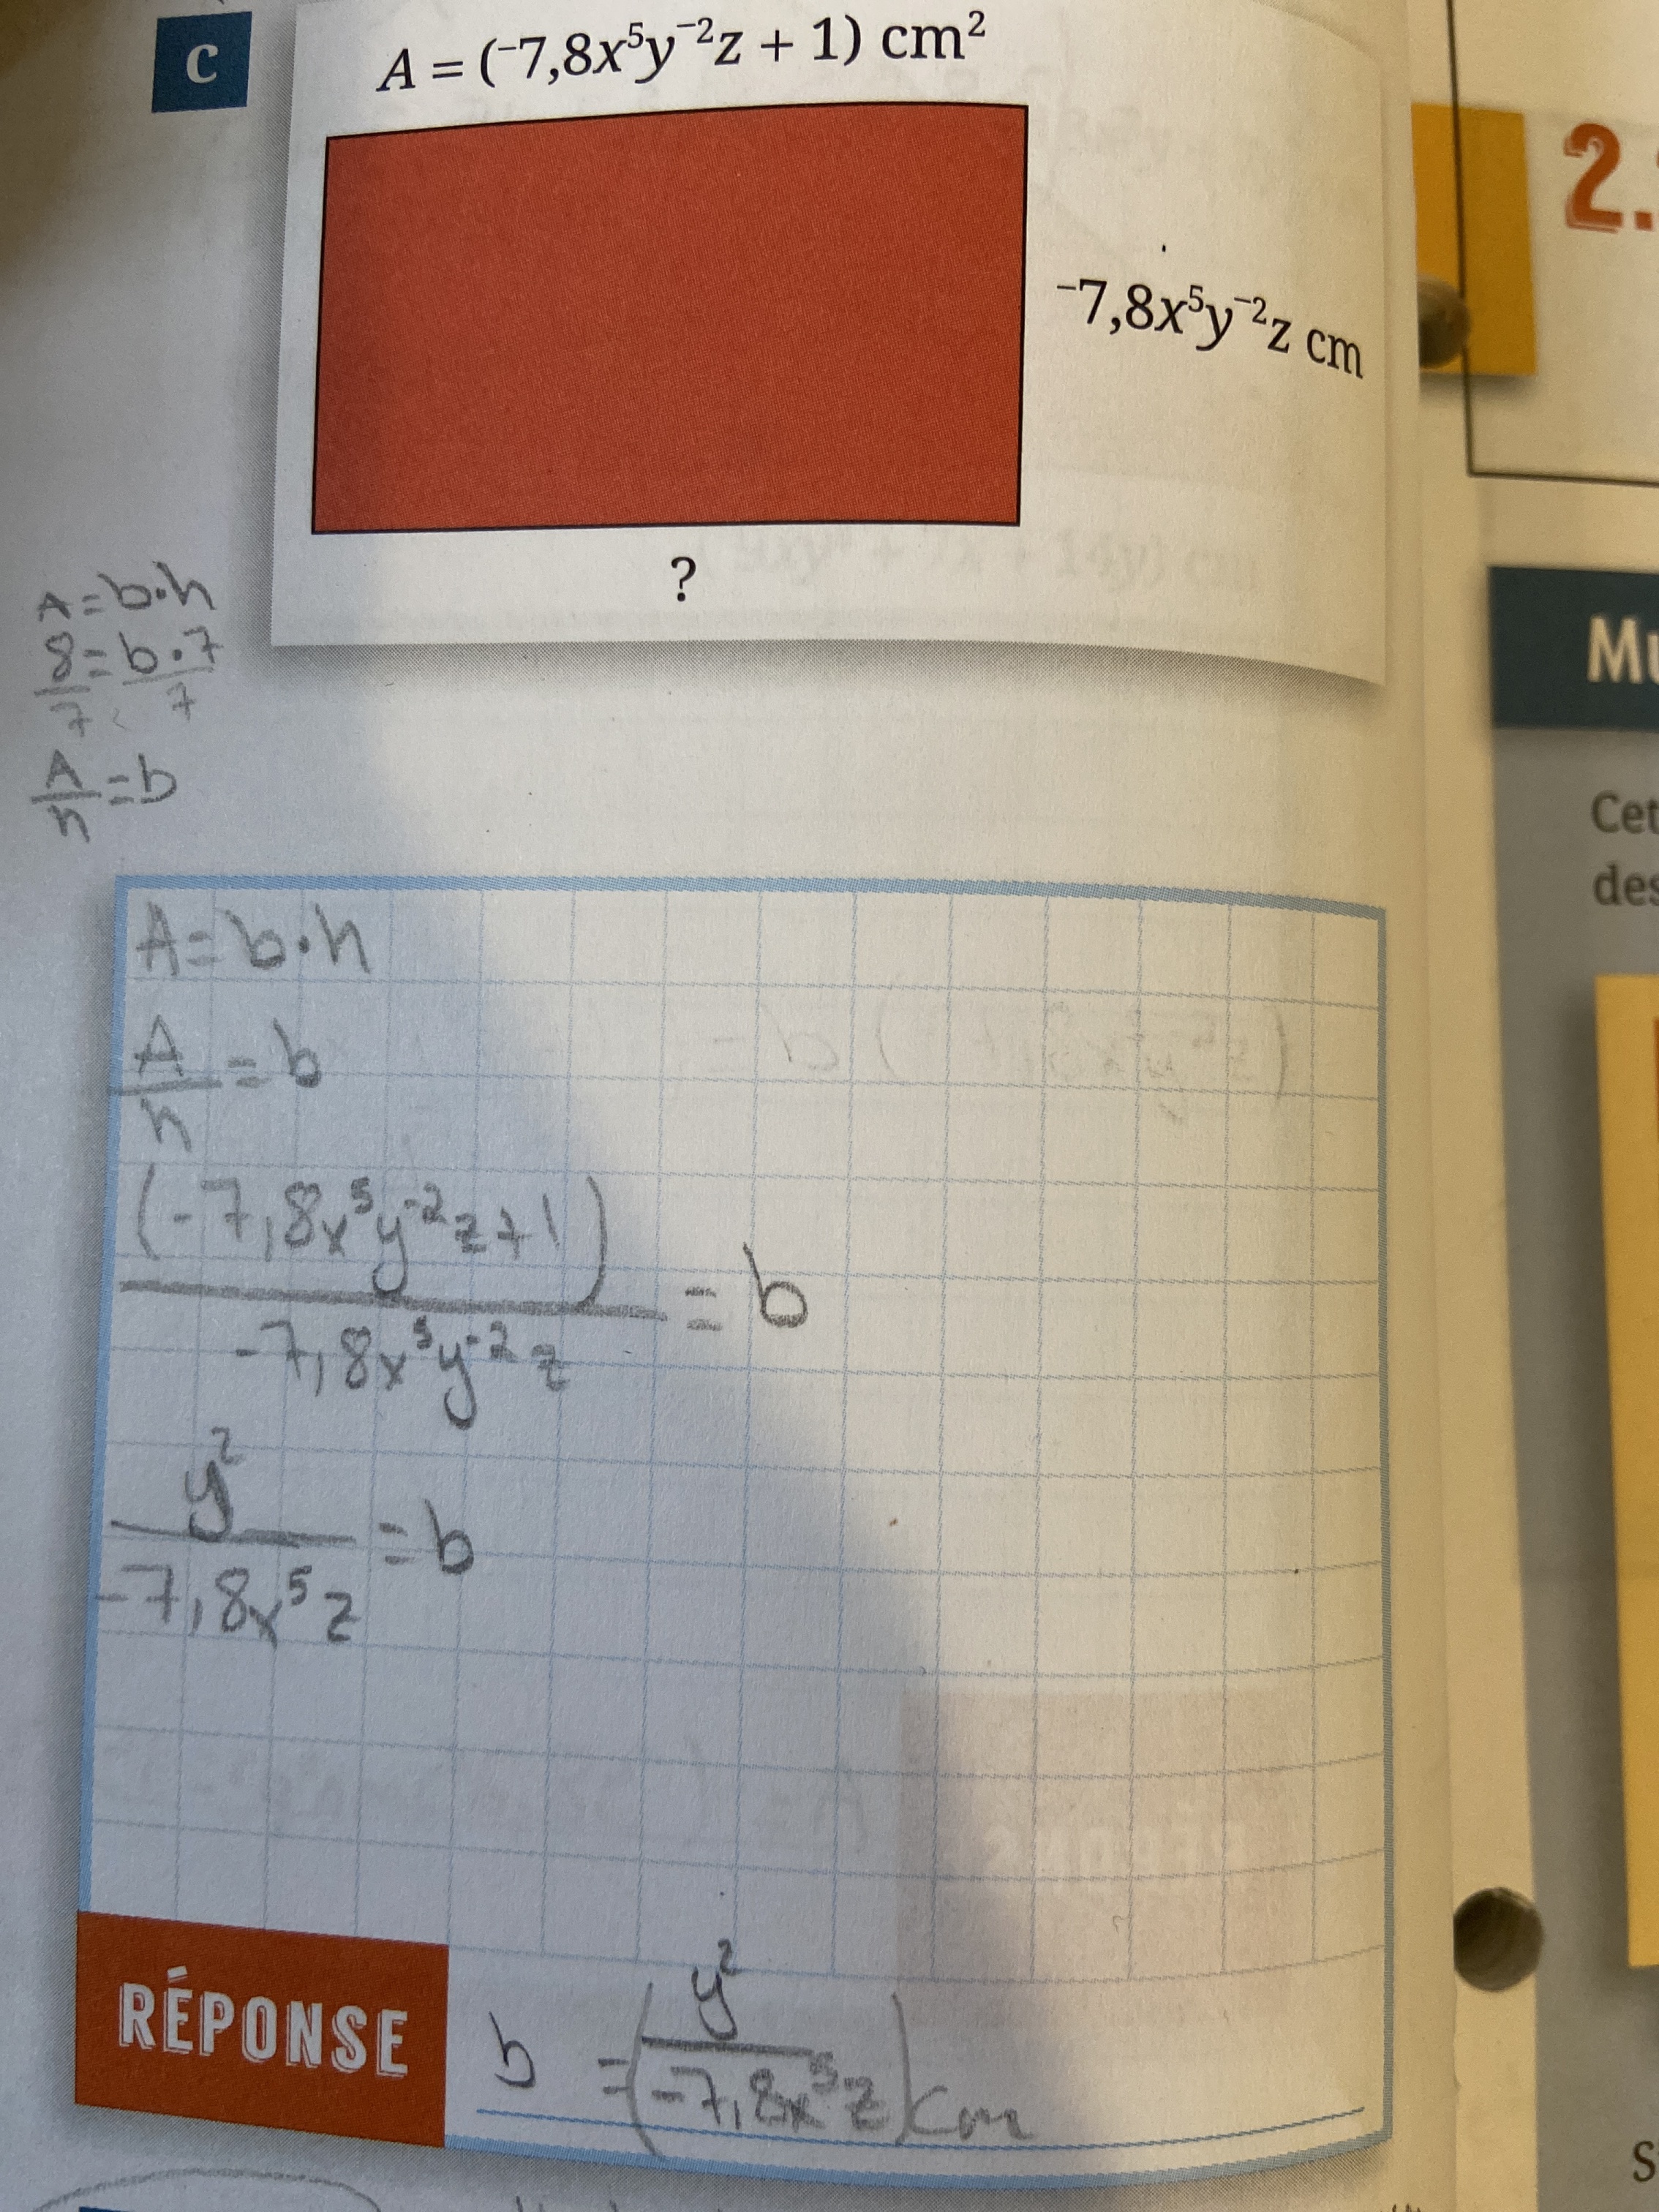 C
A = (⁻7,8x⁵y⁻²z + 1) cm²
⁻7,8x⁵y⁻²z cm
?
A=b·h
8/7=b·7/7
A/h=b
A=b·h
A/h=b
(-7,8x⁵y⁻²z+1)/-7,8x⁵y⁻²z = b
y²/-7,8x⁵z = b
RÉPONSE
b = (y²/-7,8x⁵z) cm
2.
Mu
Cet
des
S